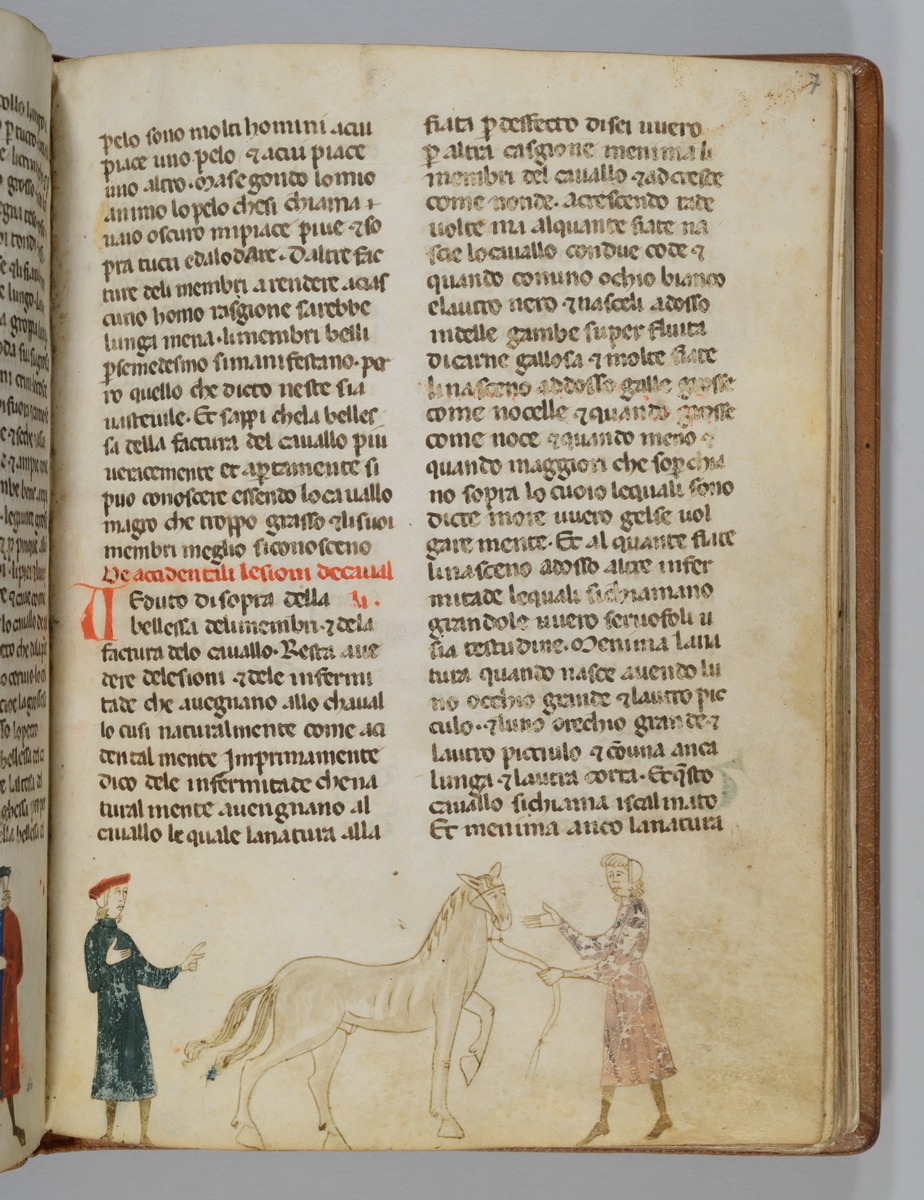 7
pelo sono molti homini acui
piace uno pelo ⁊ acui piace
uno altro. Ma segondo lo mio
animo lo pelo che si chiama
uaio oscuro mi piace piue ⁊ so
pra tucti e da lodare. Daltre fac
ture deli membri a rendere acias
cuno homo rasgione sarebbe
lunga mena. li membri belli
p semedesmo si manifestano. per
ro quello che dicto neste sia
basteuile. Et sappi che la belles
sa della factura del cauallo piu
ueracemente et aptamente si
puo conoscere essendo lo cauallo
magro che troppo grasso ⁊ li suoi
membri meglio si conosceno
De accidentali lesioni de caual
li.
Ueduto di sopra della
bellessa deli membri. ⁊ de la
factura delo cauallo. Resta aue
dere de lesioni ⁊ dele infermi
tade che auegnano allo chaual
lo cusi naturalmente come aci
dental mente Imprimamente
dico dele infermitade che na
tural mente auengnano al
cauallo le quale la natura alla
fiata p deffecto di sei uuero
p altra casgione menima li
membri del cauallo ⁊ ad cresce
come non de. acrescendo rade
uolte ma alquante fiate na
scie lo cauallo con due code ⁊
quando comuno ochio bianco
e lautro nero ⁊ nasceli adosso
in delle gambe super fluita
di carne gallosa ⁊ molte fiate
li nasceno addosso galle grosse
come nocelle ⁊ quando grosse
come noce ⁊ quando meno ⁊
quando maggiori che sop chia
no sopra lo cuoio le quali sono
dicte more uuero gelse uol
gare mente. Et al quante fiate
li nasceno adosso altre infer
mitade le quali si chiamano
grandole uuero seruofoli u
sia testudine. Menima la na
tura quando nasce auendo lu
no occhio grande ⁊ lautro pic
culo. ⁊ luno orechio grande ⁊
lautro picciulo ⁊ cōuna anca
lunga ⁊ lautra corta. Et qsto
cauallo si chiama iscalmato
Et menima anco la natura